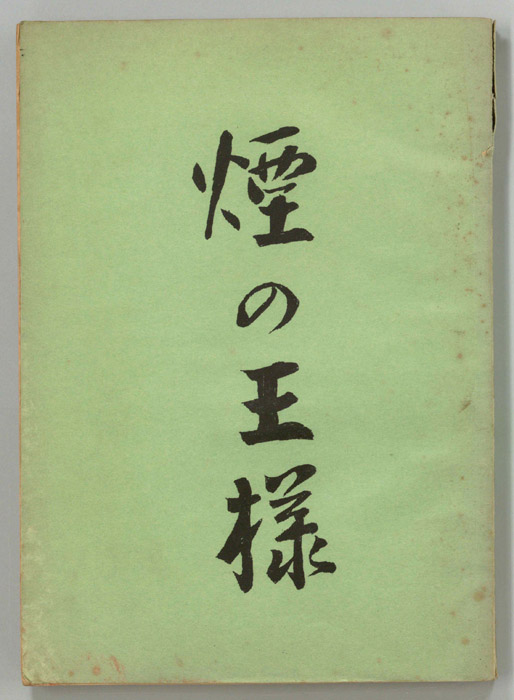 煙の王様